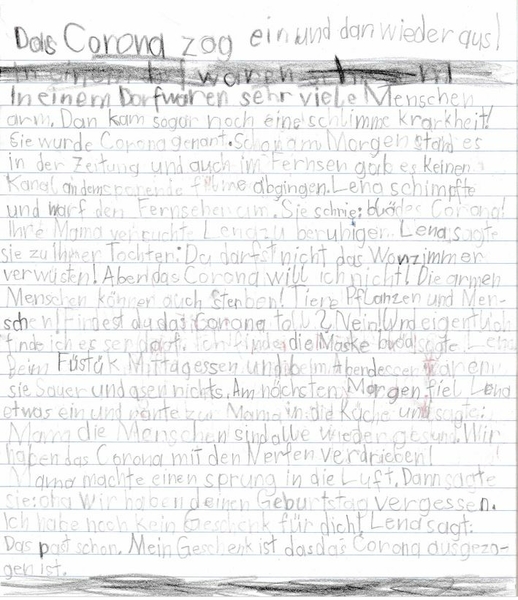 Das Corona zog ein und dan wieder aus!
In einem Dorf waren sehr viele Menschen
arm. Dan kam sogar noch eine schlimme krankheit!
Sie wurde Corona genant. Schon am Morgen stand es
in der Zeitung und auch im Fernsen gab es keinen
Kanal an dem spanende filme abgingen. Lena schimpfte
und warf den Fernseher um. Sie schrie: blödes Corona!
Ihre Mama versuchte Lena zu beruhigen. Lena sagte
sie zu Ihrer Tochter: Du darfst nicht das Wonzimmer
verwüsten! Aber das Corona will ich nicht! Die armen
Menschen können auch sterben! Tiere Pflanzen und Men-
schen! Findest du das Corona toll? Nein! Und eigentlich
finde ich es ser Ich finde die Maske sagte Lena
Beim Füstük Mittagessen und beim Abendessen waren
sie Sauer und asen nichts. Am nächsten Morgen fiel Lena
etwas ein und rante zur Mama in die Küche und sagte:
Mama die Menschen sind alle wieder gesund. Wir
haben das Corona mit den Nerfen verdrieben!
Mama machte einen sprung in die Luft. Dann sagte
sie: oha Wir haben deinen Geburtstag vergessen.
Ich habe noch kein Geschenk für dich! Lena sagt:
Das past schon. Mein Geschenk ist das das Corona ausgezo-
gen ist.